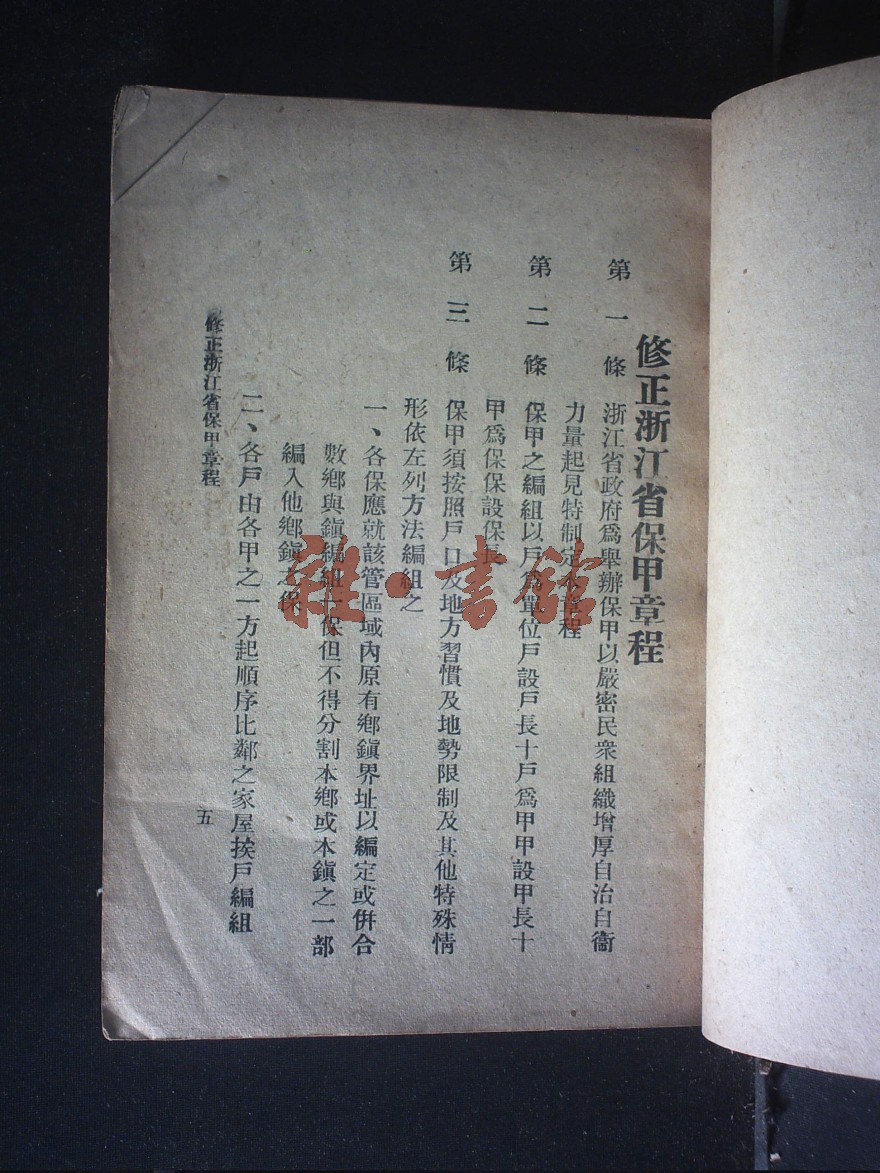 修正浙江省保甲章程
第一條 浙江省政府爲舉辦保甲以嚴密民衆組織增厚自治自衞
力量起見特制定本章程
第二條 保甲之編組以戶爲單位戶設戶長十戶爲甲甲設甲長十
甲爲保保設保長
第三條 保甲須按照戶口及地方習慣及地勢限制及其他特殊情
形依左列方法編組之
一、各保應就該管區域內原有鄉鎭界址以編定或併合
數鄉與鎭編組一保但不得分割本鄉或本鎭之一部
編入他鄉鎭之保
二、各戶由各甲之一方起順序比鄰之家屋挨戶編組
修正浙江省保甲章程
五
雜·書館